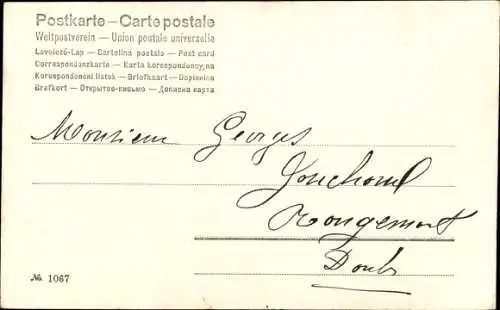 Postkarte — Carte postale
Weltpostverein — Union postale universelle
Levelező-Lap — Cartolina postale — Post card
Correspondenzkarte — Karta korespondencyjna
Korespondenční lístek — Briefkaart — Dopisnica
Brefkort — Открытое-письмо — Дописна карта
Monsieur Georges
Jouchoud
Rougemont
Doubs
№ 1067